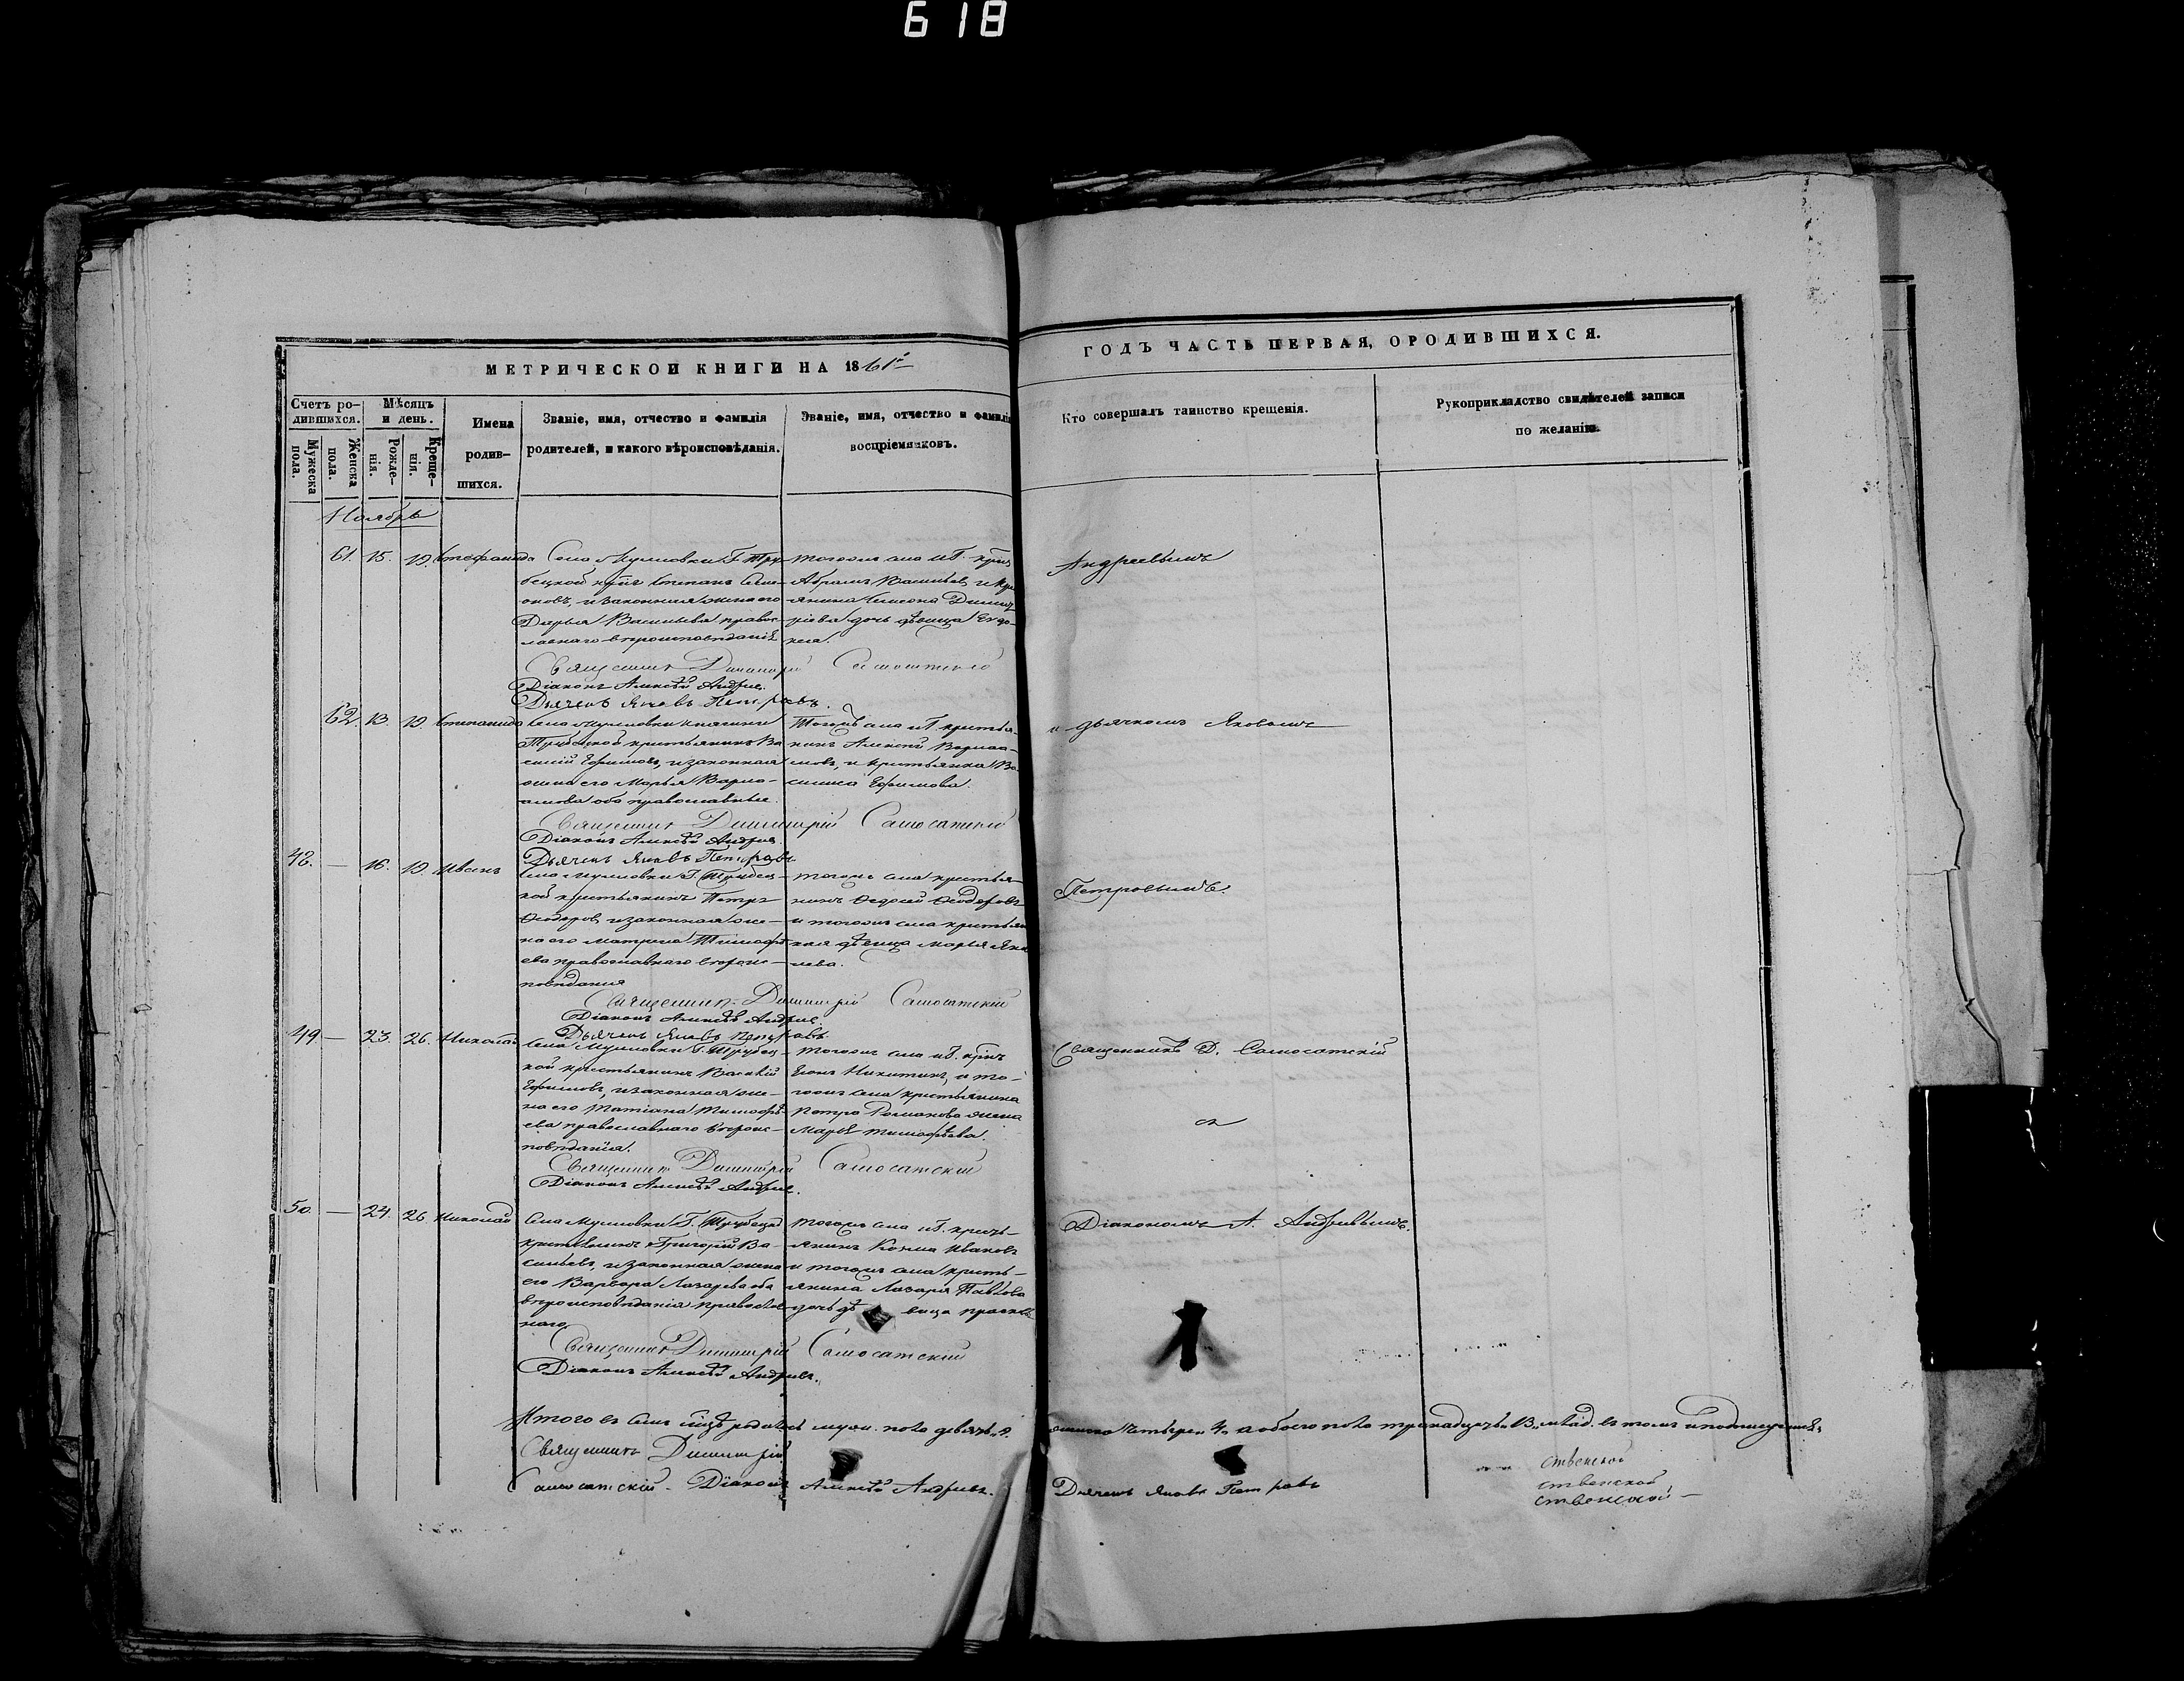 618
МЕТРИЧЕСКОЙ КНИГИ НА 1861й
ГОДЪ ЧАСТЬ ПЕРВАЯ, О РОДИВШИХСЯ.
Счетъ ро-
дившихся.
Мужеска
пола.
Женска
пола.
Мѣсяцъ
и день.
Рожде-
нія.
Креще-
нія.
Имена
родив-
шихся.
Званіе, имя, отчество и фамилія
родителей, и какого вѣроисповѣданія.
Званіе, имя, отчество и фамилія
воспріемниковъ.
Кто совершалъ таинство крещенія.
Рукоприкладство свидѣтелей записи
по желанію.
Ноябрь
61. 15. 19. Стефанида
Села Муловки Г. Тру-
бецкой Степанъ Симе-
оновъ, и законная жена его
Дарья Васильева правос-
лавнаго вѣроисповѣданія
тогожъ села и Г.
Абрамъ Васильевъ и
янина Симеона Димит
ріева дочь дѣвица
Андреевымъ
Священникъ Димитрій Самосатскій
Діаконъ Алексѣй Андреевъ.
Дьячекъ Яковъ Петровъ.
62. 13. 19. Степанида
Села Муловки княгини
Трубецкой крестьянинъ Ва
силій Ефимовъ, и законная
жена его Марья Варла-
амова оба православные.
Тогожъ села и Г. крестья-
нинъ Алексѣй Варлаа-
мовъ, и крестьянка Ва-
силиса Ефимова.
и дьячкомъ Яковомъ
Священникъ Димитрій Самосатскій
Діаконъ Алексѣй Андреевъ.
Дьячекъ Яковъ Петровъ
48. — 16. 19. Иванъ
Села Муловки Г. Трубец-
кой крестьянинъ Петръ
Ѳеодоровъ, и законная же-
на его Матрена Тимофѣ-
ева православнаго вѣроис-
повѣданія
тогожъ села крестья-
нинъ Ѳедосій Ѳеодоровъ
и тогожъ села крестьян
ская дѣвица Марья Яко
влева.
Петровымъ.
Священникъ Димитрій Самосатскій
Діаконъ Алексѣй Андреевъ.
Дьячекъ Яковъ Петровъ
49. — 23. 26. Николай
Села Муловки Г. Трубец-
кой крестьянинъ Василій
Ефимовъ, и законная же-
на его Татіана Тимофѣ-
ева православнаго вѣроис-
повѣданія.
тогожъ села и Г.
Никитинъ, и то-
гожъ села крестьянина
Петра Романова жена
Марья Тимофѣева.
Священникъ Д. Самосатскій
съ
Священникъ Димитрій Самосатскій
Діаконъ Алексѣй Андреевъ.
50. — 24. 26. Николай
Села Муловки Г. Трубецкой
крестьянинъ Григорій Ва-
сильевъ, и законная жена
его Варвара Лазарева оба
вѣроисповѣданія православ
наго.
тогожъ села и Г. кресть-
янинъ Козма Ивановъ
и тогожъ села кресть-
янина Лазаря Павлова
дочь дѣвица
Діакономъ А. Андреевымъ.
Священникъ Димитрій Самосатскій
Діаконъ Алексѣй Андреевъ.
Итого въ семъ родилось муж. пола девять 9.
женска четыре 4, а обоего пола тринадцать 13, въ томъ и подписуемся
Священникъ Димитрій
Самосатскій. Діаконъ Алексѣй Андреевъ.
Дьячекъ Яковъ Петровъ
ственской
ственской
ственской